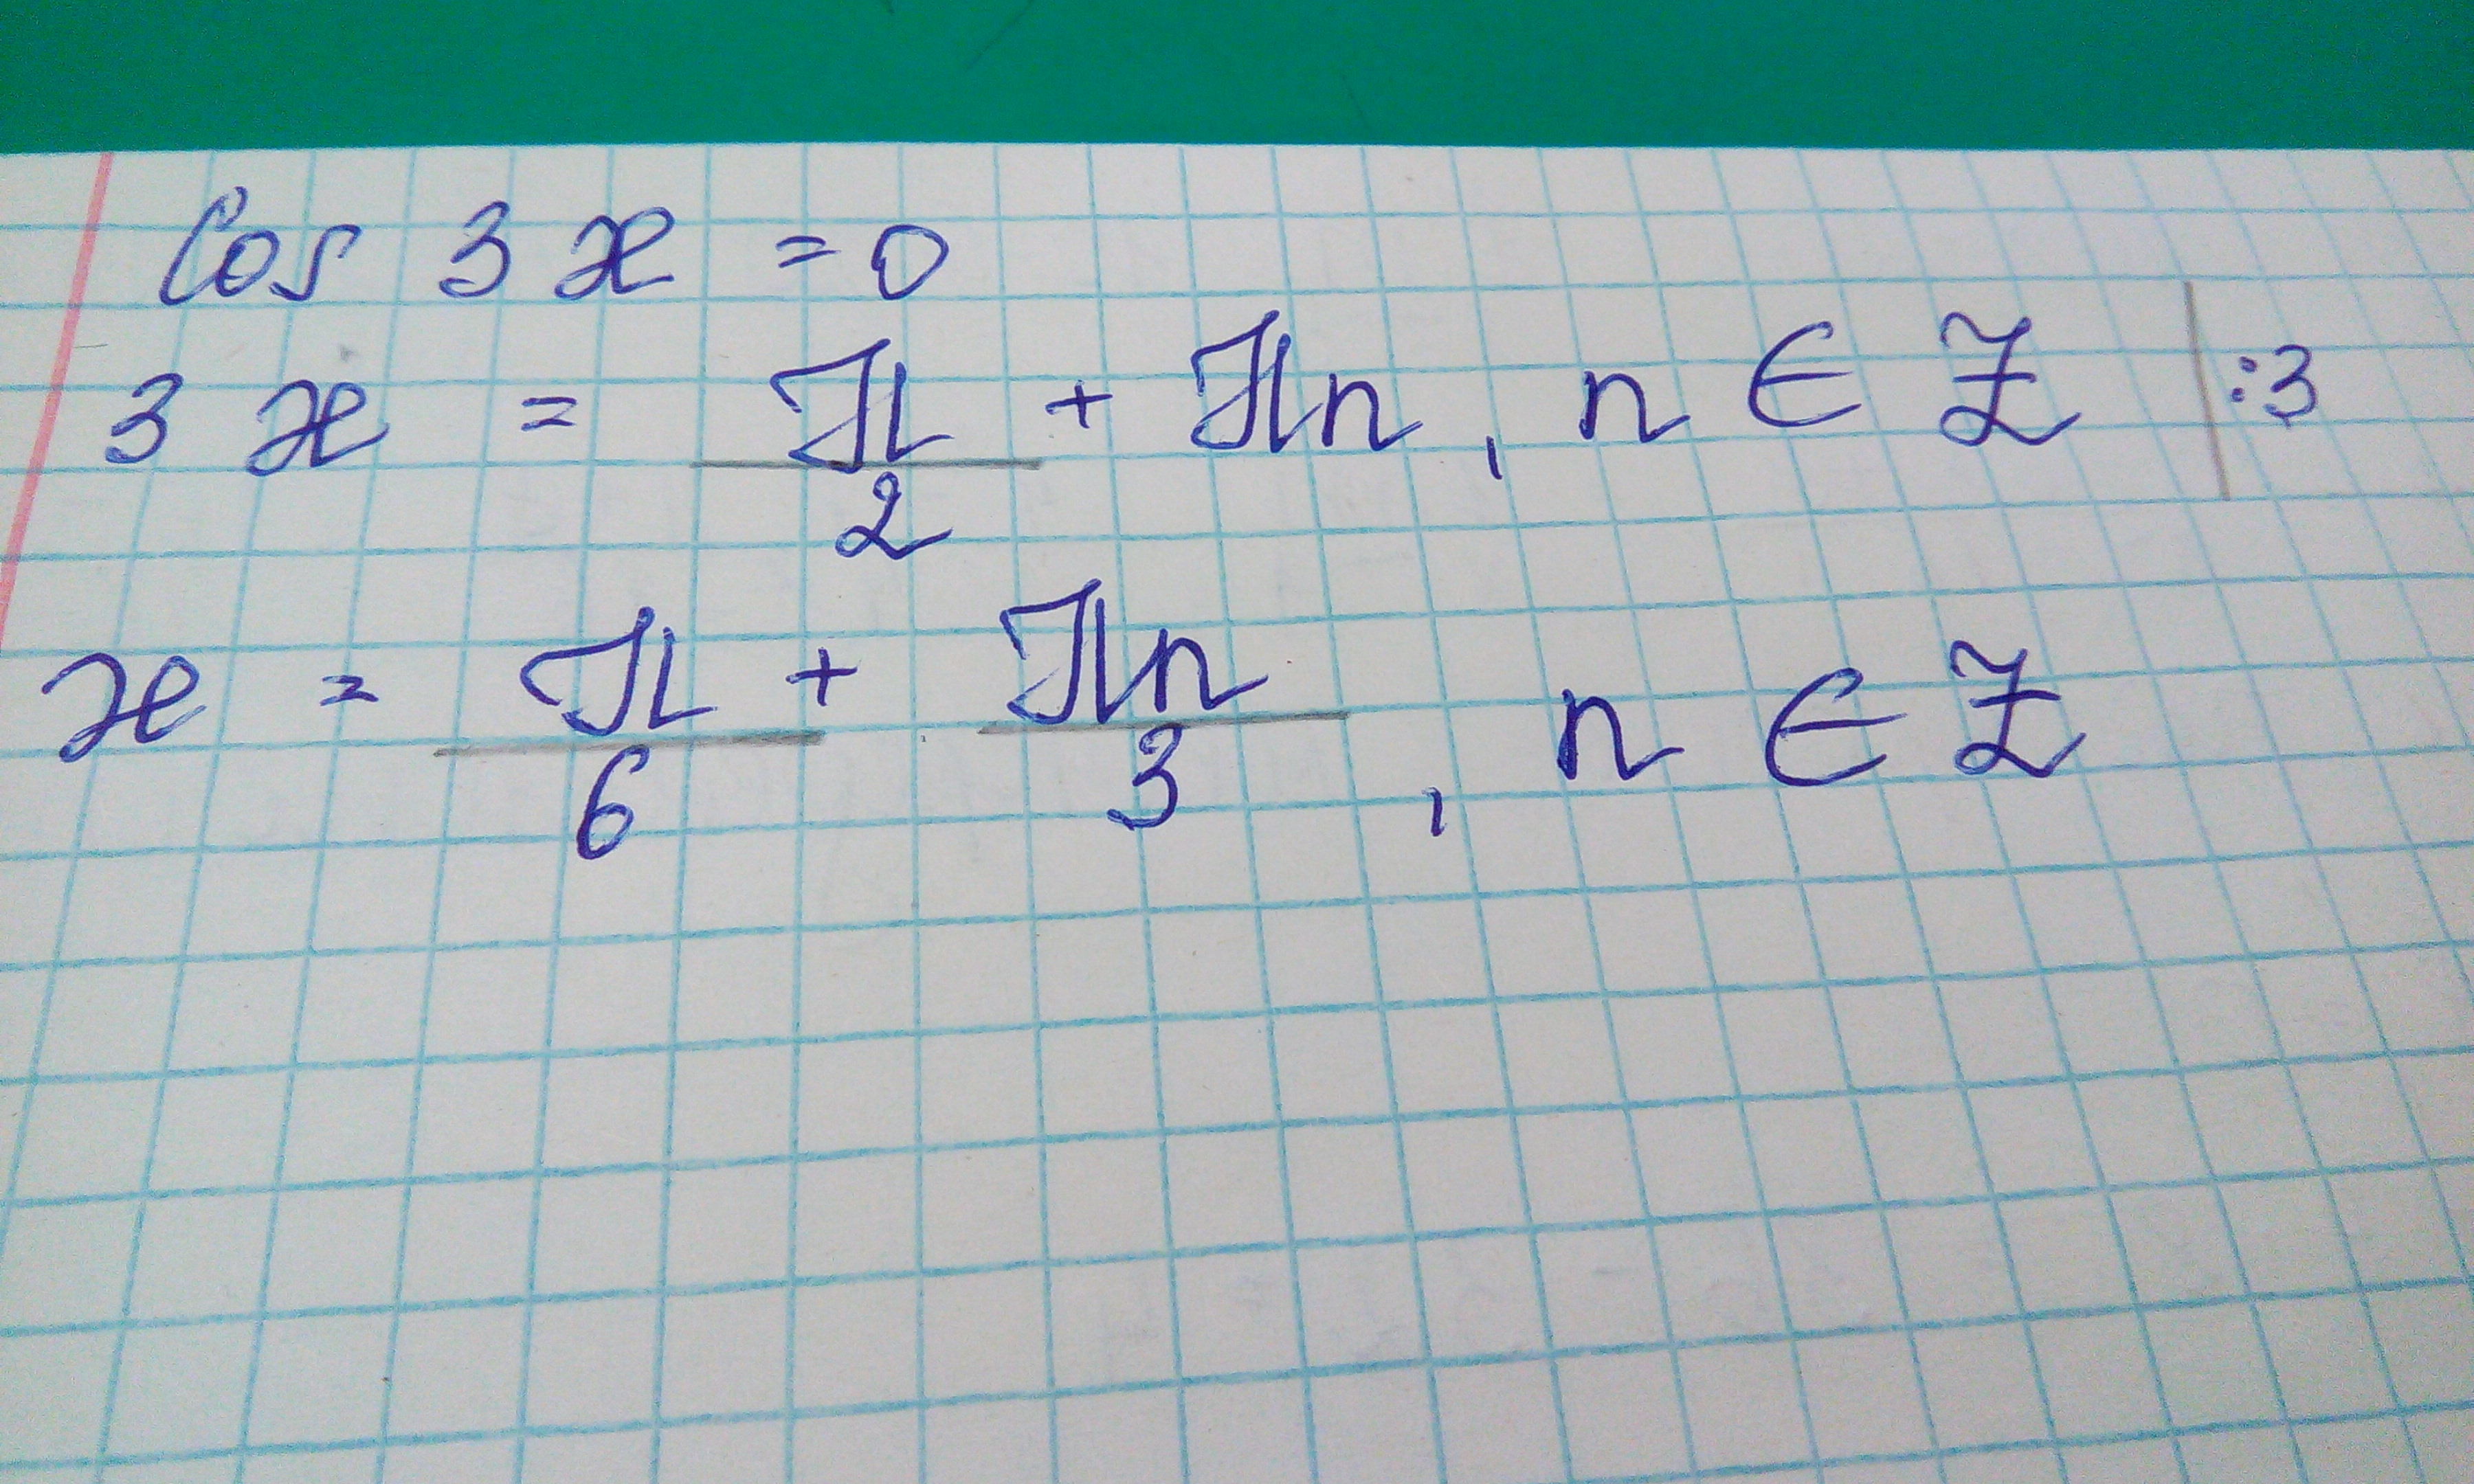 cos 3x = 0
3x = π/2 + πn, n ∈ Z | :3
x = π/6 + πn/3, n ∈ Z